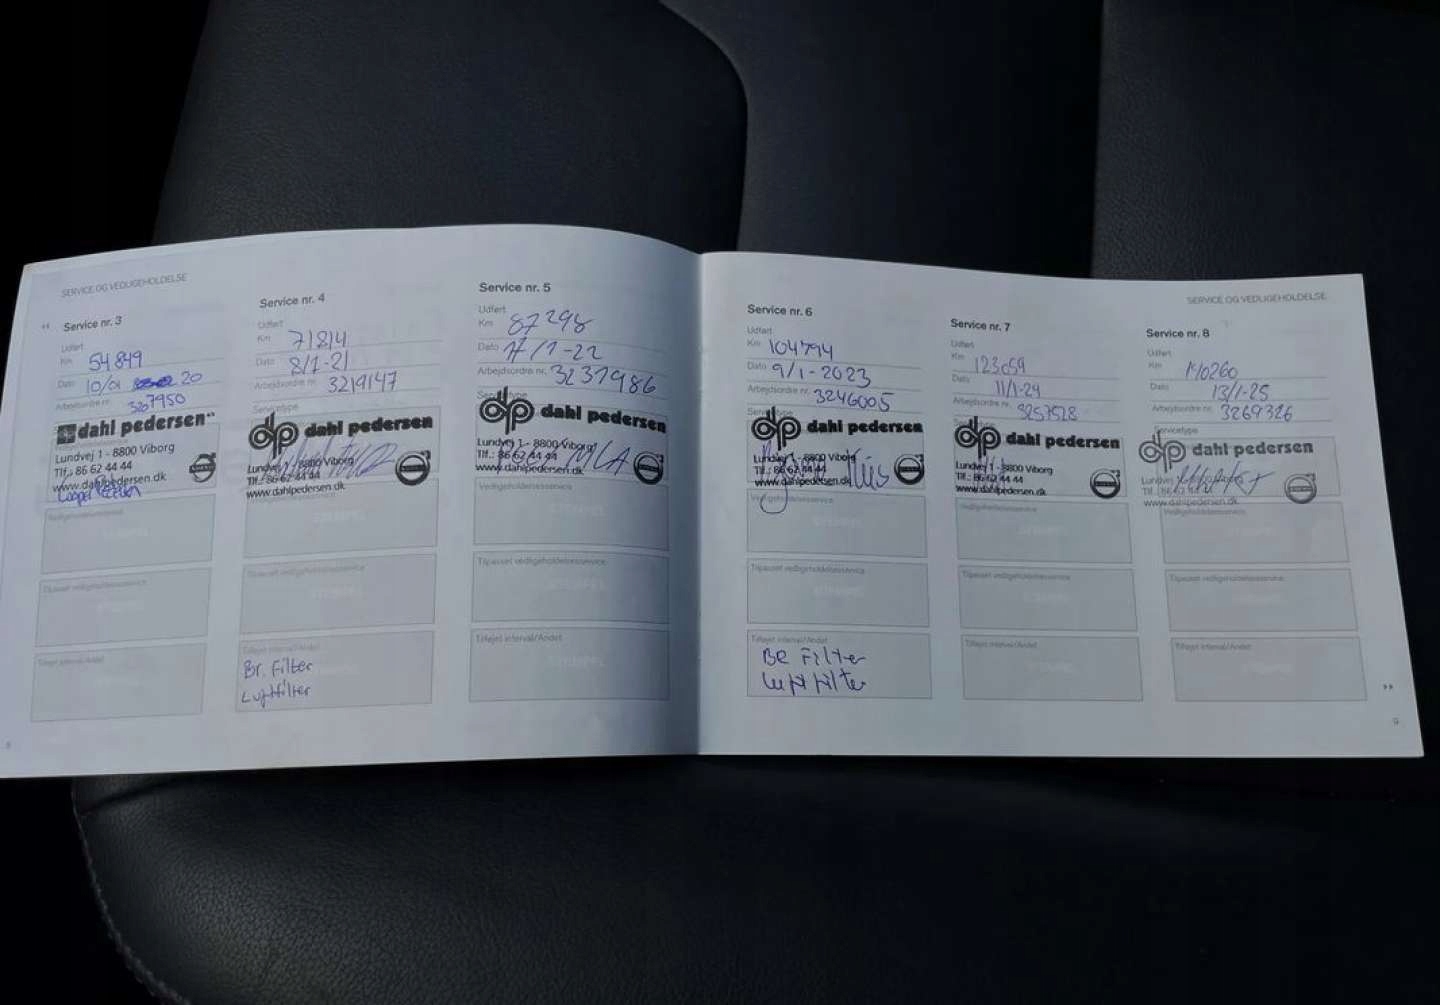 SERVICE OG VEDLIGEHOLDELSE
Service nr. 3
Udført
Km 54849
Dato 10/01 20
Arbejdsordre nr. 3207950
dahl pedersen
Lundvej 1 - 8800 Viborg
Tlf.: 86 62 44 44
www.dahlpedersen.dk
Vedligeholdelsesservice
Tilpasset vedligeholdelsesservice
Tilføjet interval/Andet
8
Service nr. 4
Udført
Km 71814
Dato 8/1-21
Arbejdsordre nr. 3219147
Servicetype
dp dahl pedersen
Lundvej 1 - 8800 Viborg
Tlf.: 86 62 44 44
www.dahlpedersen.dk
Vedligeholdelsesservice
Tilpasset vedligeholdelsesservice
Tilføjet interval/Andet
Br. Filter
Luftfilter
Service nr. 5
Udført
Km 87298
Dato 17/1-22
Arbejdsordre nr. 3231986
dp dahl pedersen
Lundvej 1 - 8800 Viborg
Tlf.: 86 62 44 44
www.dahlpedersen.dk
Vedligeholdelsesservice
Tilpasset vedligeholdelsesservice
Tilføjet interval/Andet
Service nr. 6
Udført
Km 104794
Dato 9/1-2023
Arbejdsordre nr. 3246005
dp dahl pedersen
Lundvej 1 - 8800 Viborg
Tlf.: 86 62 44 44
www.dahlpedersen.dk
Vedligeholdelsesservice
Tilpasset vedligeholdelsesservice
Tilføjet interval/Andet
BR Filter
Luft filter
SERVICE OG VEDLIGEHOLDELSE
Service nr. 7
Udført
Km 123059
Dato 11/1-24
Arbejdsordre nr. 3257528
dp dahl pedersen
Lundvej 1 - 8800 Viborg
Tlf.: 86 62 44 44
www.dahlpedersen.dk
Vedligeholdelsesservice
Tilpasset vedligeholdelsesservice
Tilføjet interval/Andet
Service nr. 8
Udført
Km 140260
Dato 13/1-25
Arbejdsordre nr. 3269326
Servicetype
dp dahl pedersen
Lundvej
Tlf.: 86 62 44 44
www.dahlpedersen.dk
Vedligeholdelsesservice
Tilpasset vedligeholdelsesservice
Tilføjet interval/Andet
9